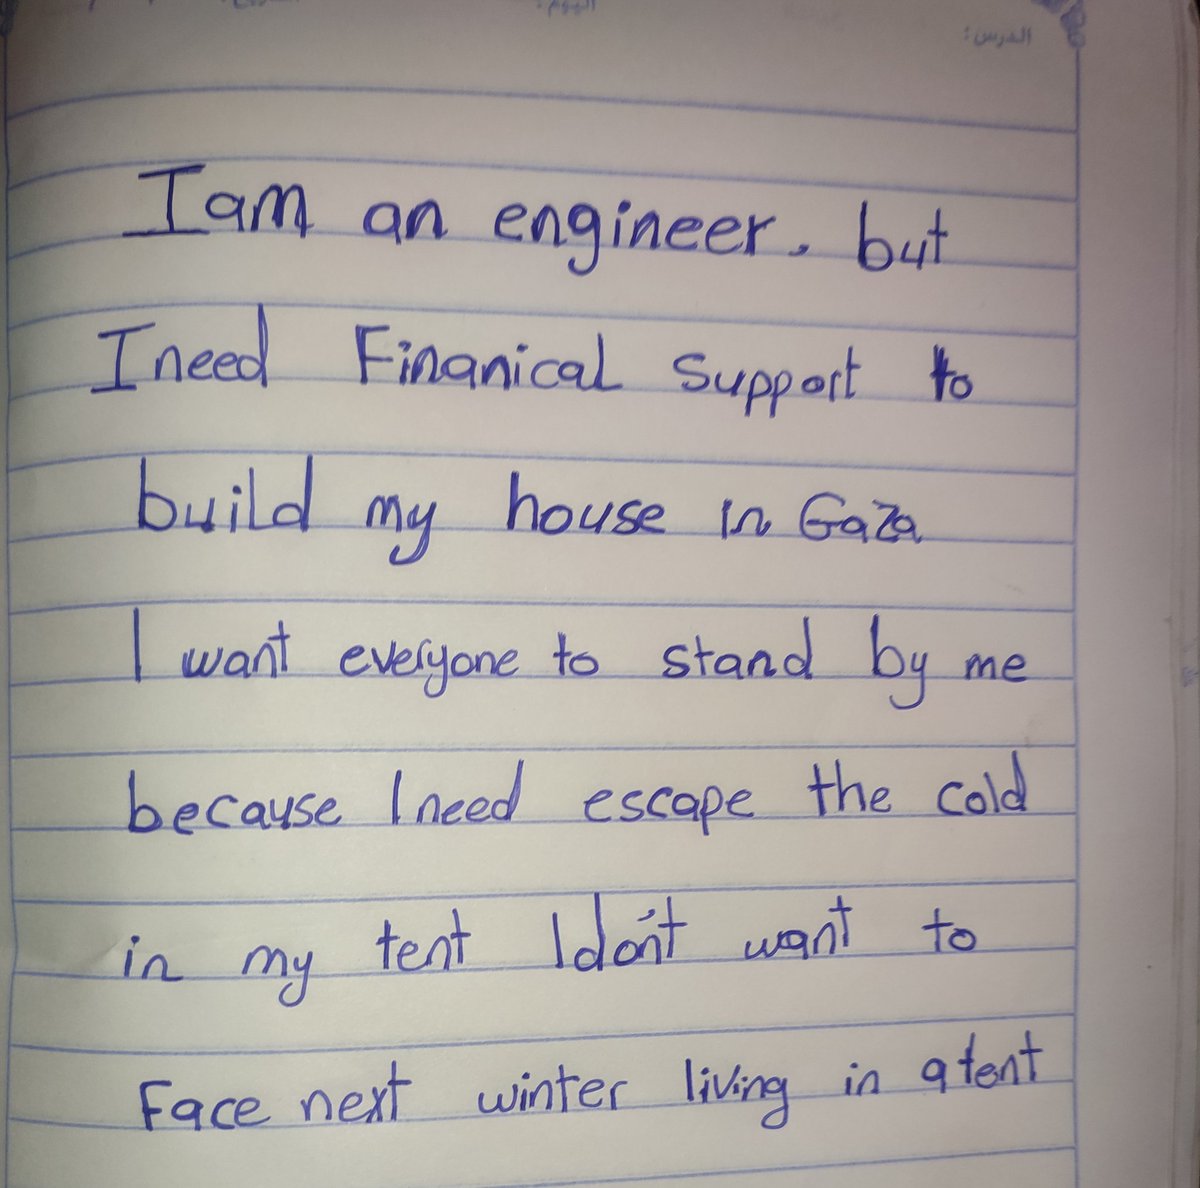 اليوم:
الدرس:
I am an engineer, but
I need Finanical Support to
build my house in Gaza
I want everyone to stand by me
because I need escape the cold
in my tent I don't want to
Face next winter living in a tent